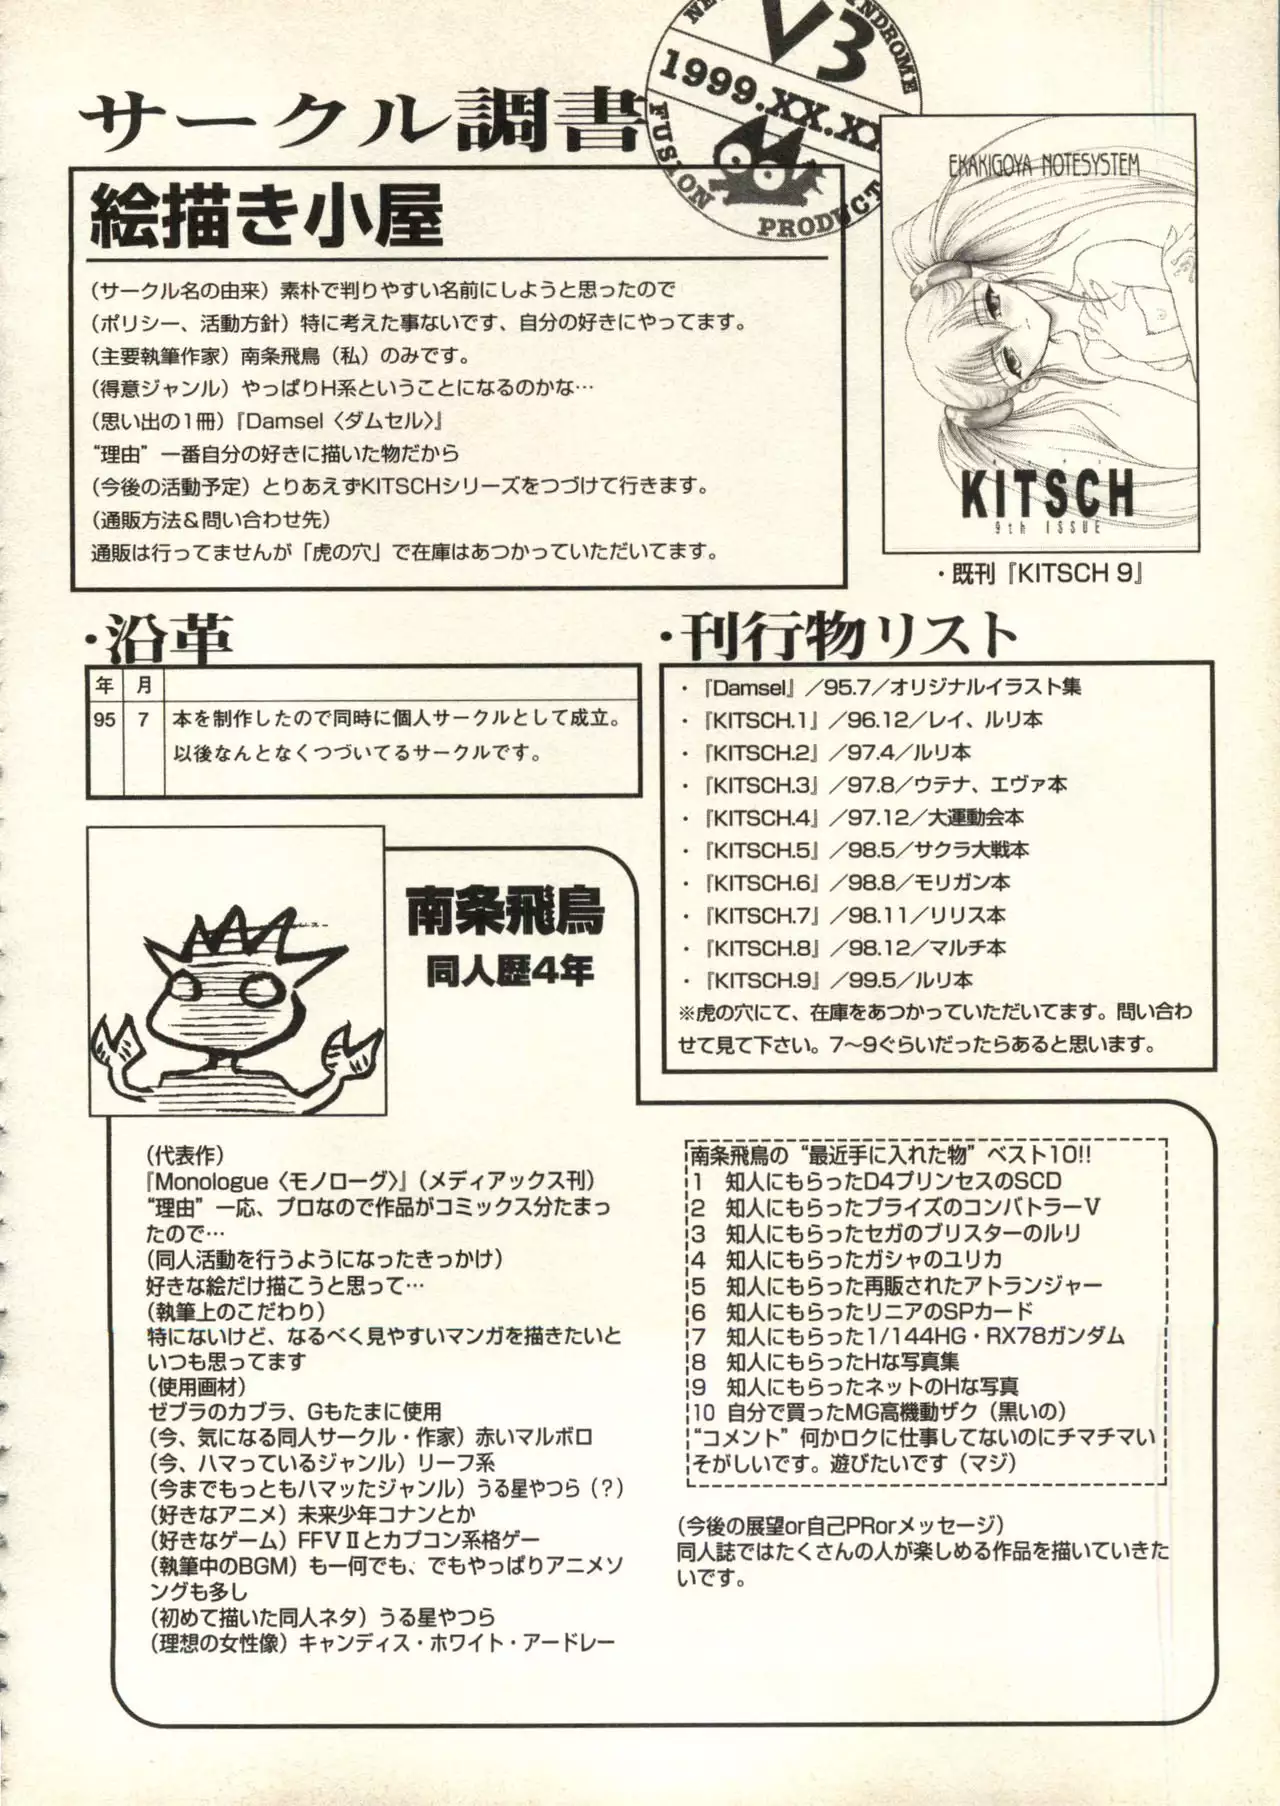 サークル調書
V3
1999.XX.XX
FUSION PRODUCT
絵描き小屋
(サークル名の由来)素朴で判りやすい名前にしようと思ったので
(ポリシー、活動方針)特に考えた事ないです、自分の好きにやってます。
(主要執筆作家)南条飛鳥(私)のみです。
(得意ジャンル)やっぱりH系ということになるのかな…
(思い出の1冊)『Damsel〈ダムセル〉』
“理由”一番自分の好きに描いた物だから
(今後の活動予定)とりあえずKITSCHシリーズをつづけて行きます。
(通販方法&問い合わせ先)
通販は行ってませんが「虎の穴」で在庫はあつかっていただいてます。
EKAKIGOYA NOTESYSTEM
KITSCH
9th ISSUE
・既刊『KITSCH 9』
・沿革
年 月
95 7 本を制作したので同時に個人サークルとして成立。
以後なんとなくつづいてるサークルです。
・刊行物リスト
・『Damsel』/95.7/オリジナルイラスト集
・『KITSCH.1』/96.12/レイ、ルリ本
・『KITSCH.2』/97.4/ルリ本
・『KITSCH.3』/97.8/ウテナ、エヴァ本
・『KITSCH.4』/97.12/大運動会本
・『KITSCH.5』/98.5/サクラ大戦本
・『KITSCH.6』/98.8/モリガン本
・『KITSCH.7』/98.11/リリス本
・『KITSCH.8』/98.12/マルチ本
・『KITSCH.9』/99.5/ルリ本
※虎の穴にて、在庫をあつかっていただいてます。問い合わ
せて見て下さい。7〜9ぐらいだったらあると思います。
南条飛鳥
同人歴4年
(代表作)
『Monologue〈モノローグ〉』(メディアックス刊)
“理由”一応、プロなので作品がコミックス分たまっ
たので…
(同人活動を行うようになったきっかけ)
好きな絵だけ描こうと思って…
(執筆上のこだわり)
特にないけど、なるべく見やすいマンガを描きたいと
いつも思ってます
(使用画材)
ゼブラのカブラ、Gもたまに使用
(今、気になる同人サークル・作家)赤いマルボロ
(今、ハマっているジャンル)リーフ系
(今までもっともハマッたジャンル)うる星やつら(?)
(好きなアニメ)未来少年コナンとか
(好きなゲーム)FFVⅡとカプコン系格ゲー
(執筆中のBGM)も一何でも、でもやっぱりアニメソ
ングも多し
(初めて描いた同人ネタ)うる星やつら
(理想の女性像)キャンディス・ホワイト・アードレー
南条飛鳥の“最近手に入れた物”ベスト10!!
1 知人にもらったD4プリンセスのSCD
2 知人にもらったプライズのコンバトラーV
3 知人にもらったセガのブリスターのルリ
4 知人にもらったガシャのユリカ
5 知人にもらった再販されたアトランジャー
6 知人にもらったリニアのSPカード
7 知人にもらった1/144HG・RX78ガンダム
8 知人にもらったHな写真集
9 知人にもらったネットのHな写真
10 自分で買ったMG高機動ザク(黒いの)
“コメント”何かロクに仕事してないのにチマチマい
そがしいです。遊びたいです(マジ)
(今後の展望or自己PRorメッセージ)
同人誌ではたくさんの人が楽しめる作品を描いていきた
いです。